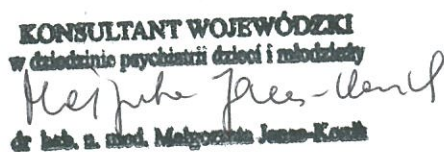 KONSULTANT WOJEWÓDZKI
w dziedzinie psychiatrii dzieci i młodzieży
dr hab. n. med. Małgorzata Janas-Kozik